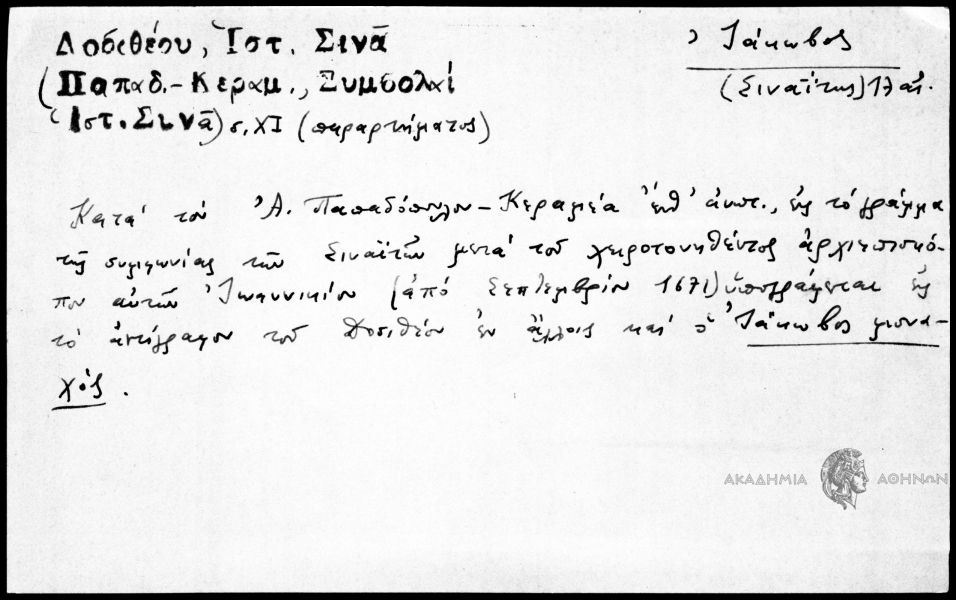 Δοσιθέου, Ἱστ. Σινᾶ
(Παπαδ.-Κεραμ., Συμβολαί
Ἱστ. Σινᾶ) σ. XI (παραρτήματος)
Ἰάκωβος
(Σιναΐτης) 17 αἰ.
Κατά τόν Ἀ. Παπαδόπουλον-Κεραμέα ἔνθ' ἀνωτ., εἰς τό γράμμα
τῆς συμφωνίας τῶν Σιναϊτῶν μετά τοῦ χειροτονηθέντος ἀρχιεπισκό-
που αὐτῶν Ἰωαννικίου (ἀπό Σεπτεμβρίου 1671) ὑπογράφεται εἰς
τό ἀντίγραφον τοῦ Δοσιθέου ἐν ἄλλοις καί ὁ Ἰάκωβος μονα-
χός.
ΑΚΑΔΗΜΙΑ ΑΘΗΝΩΝ